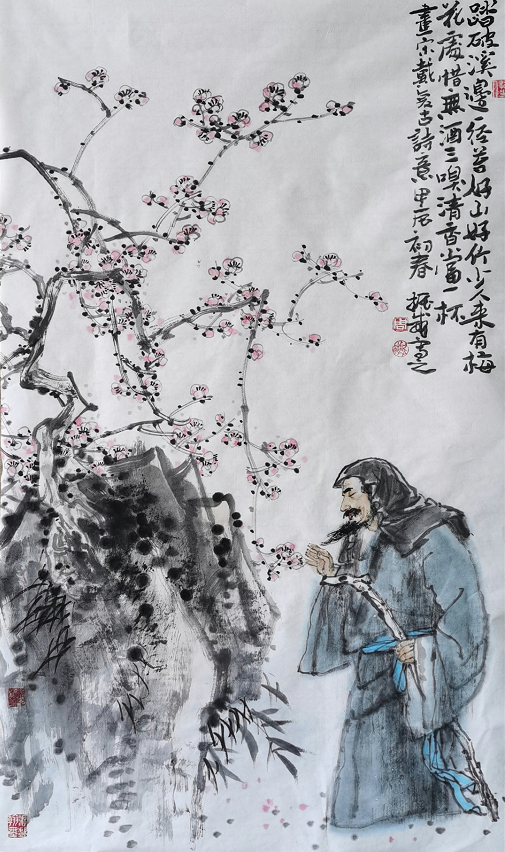 踏破溪邊一径苔好山好竹少人来有梅
花處惜無酒三嗅清香當一杯
畫宋戴复古詩意甲辰初春